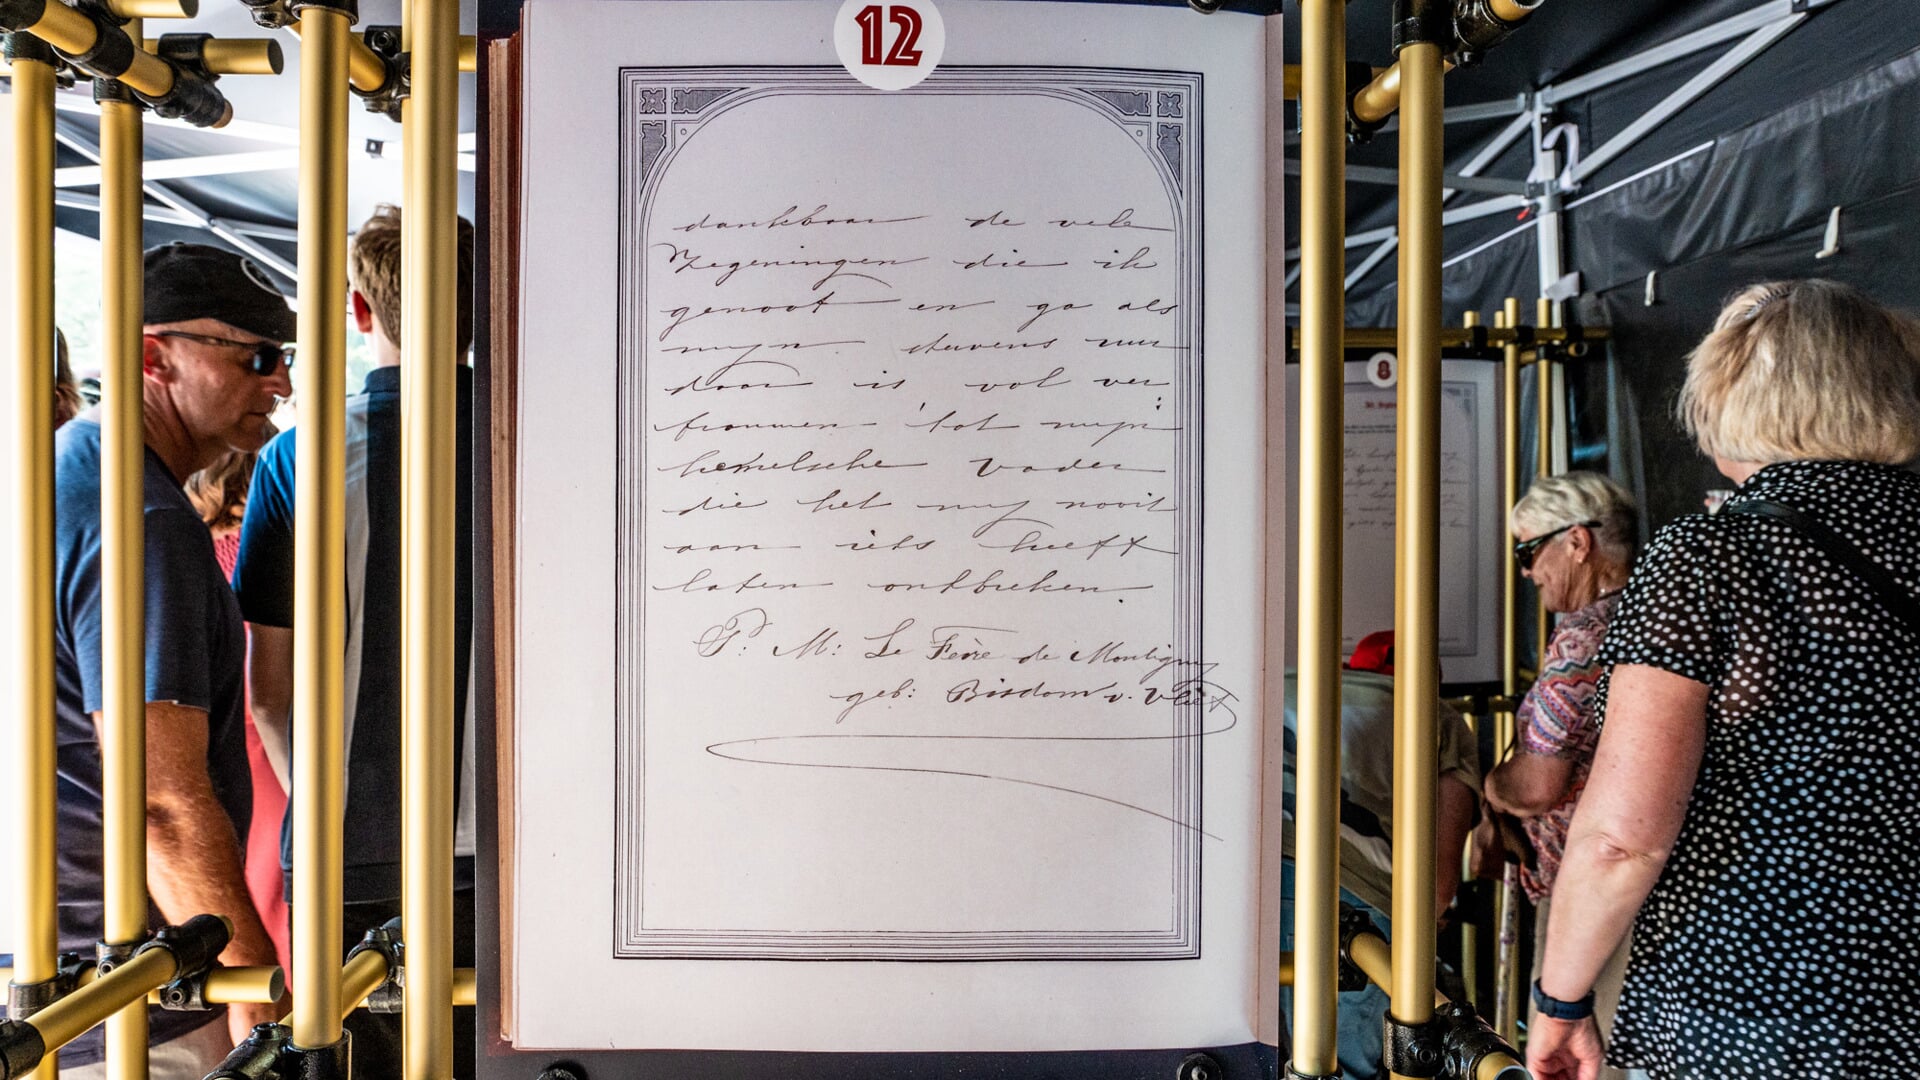 12
dankbaar de vele
Zegeningen die ik
genoot en ga als
mijn stervens uur
daar is vol ver
trouwen tot mijn
hemelsche Vader
die het mij nooit
aan iets heeft
laten ontbreken.
P. M: Le Fèvre de Montigny
geb: Bisdom v. Vliet
8